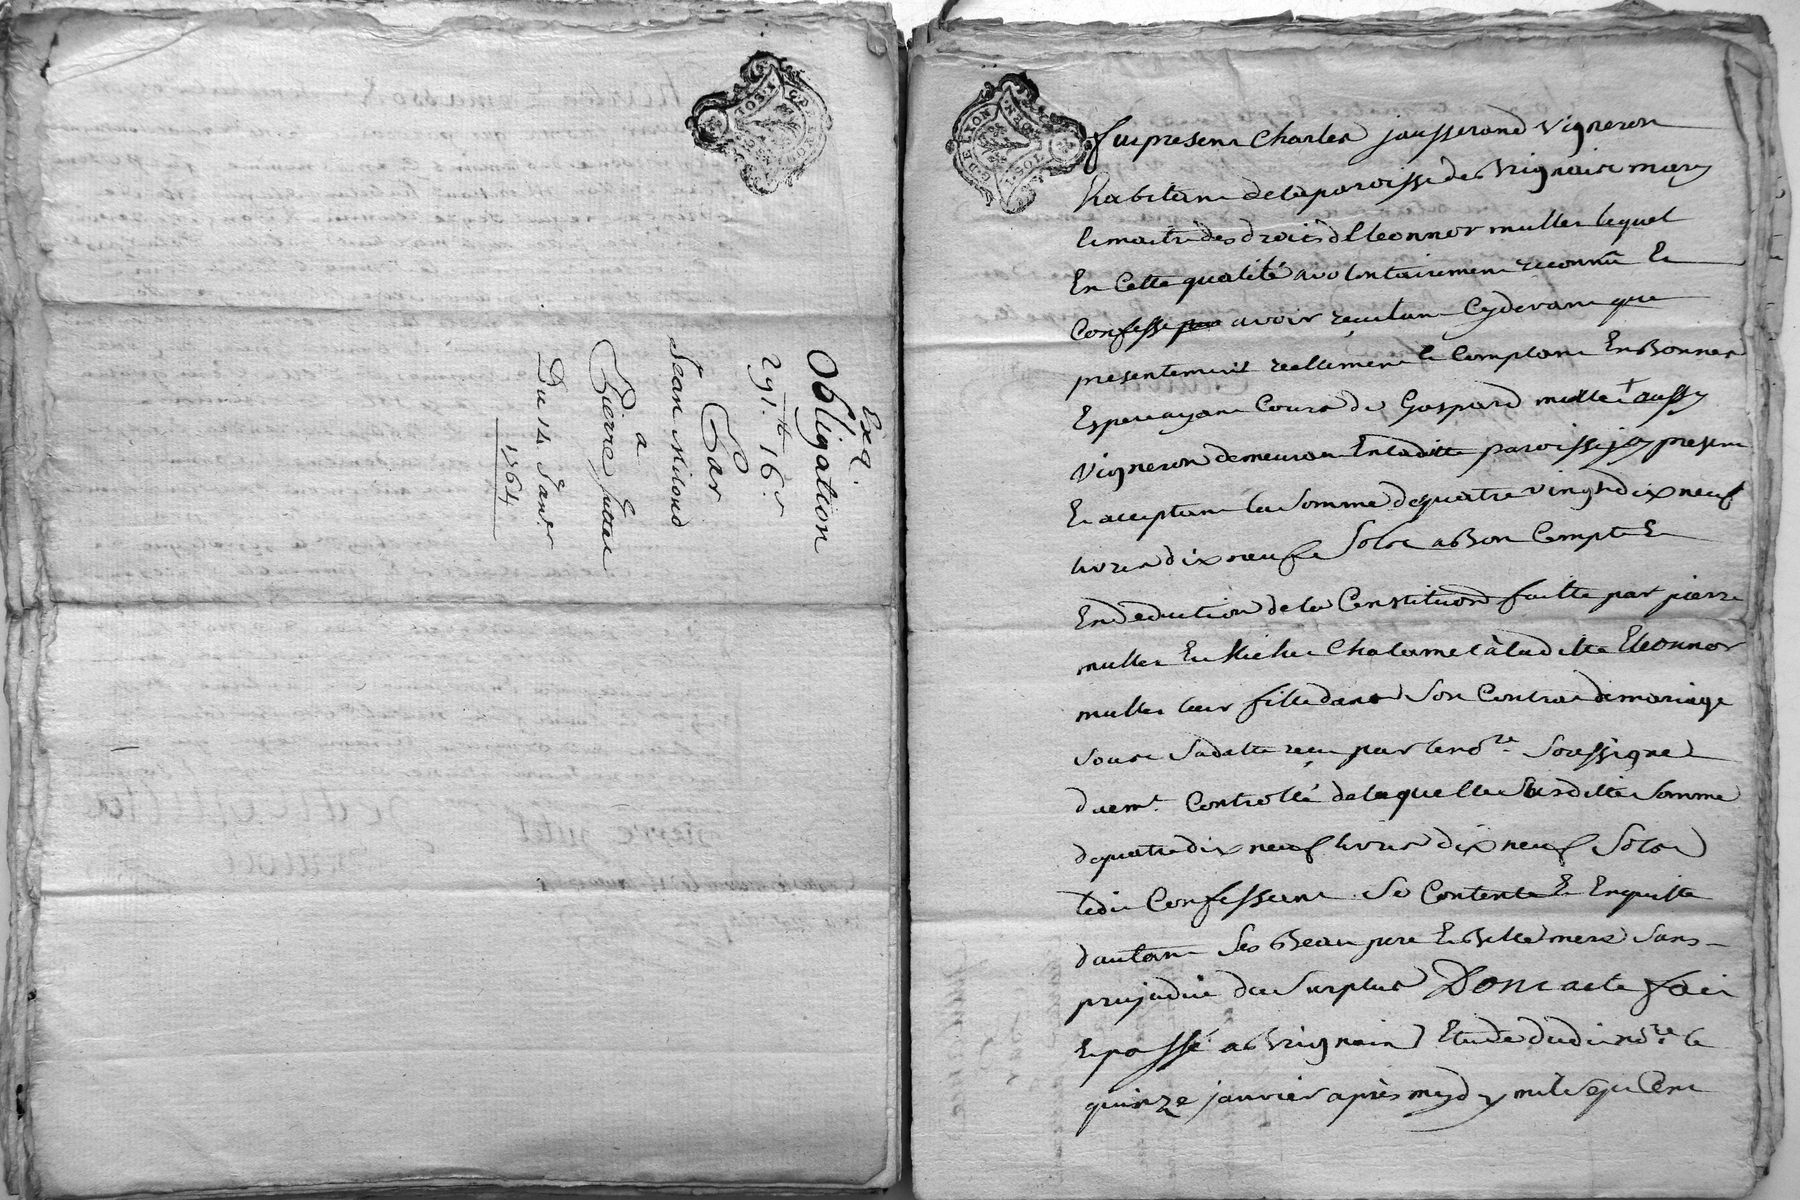 Exp.
Obligation
291.tt 16.s
Par
Jean Milond
a
Pierre Juttet
Du 14 Janv.r
1764
G.DE LYON
SOL
Fut present Charles jausserand Vigneron
habitant de la paroisse de Brignais mary
le maitre des droits d'Eleonnor mullet lequel
En Cette qualité a volontairement reconnu Et
Confesse avoir recu tant Cydevant que
presentement reellement Comptant En Bonnes
Especes ayant Cours de Gaspard mullet aussy
Vigneron demeurant En ladite paroisse jcy present
Et acceptant la Somme de quatre vingt dix neuf
livres dix neuf Sols a Bon Compte Et
En deduction de la Constitution faitte par pierre
mullet Et Chalamel à laditte Eleonnor
mullet leur fille dans Son Contrat de mariage
Sous Sa datte recu par le no.re Soussigné
duem.t Controllé de laquelle Susditte Somme
de quatre dix neuf livres dix neuf Sols
ledit Confessant Se Contente Et En quitte
d'autant Ses Beau pere Et Belle mere Sans
prejudice du Surplus Dont acte fait
Et passé a Brignais Etude dudit no.re le
quinze janvier après mydy mil Sept Cent